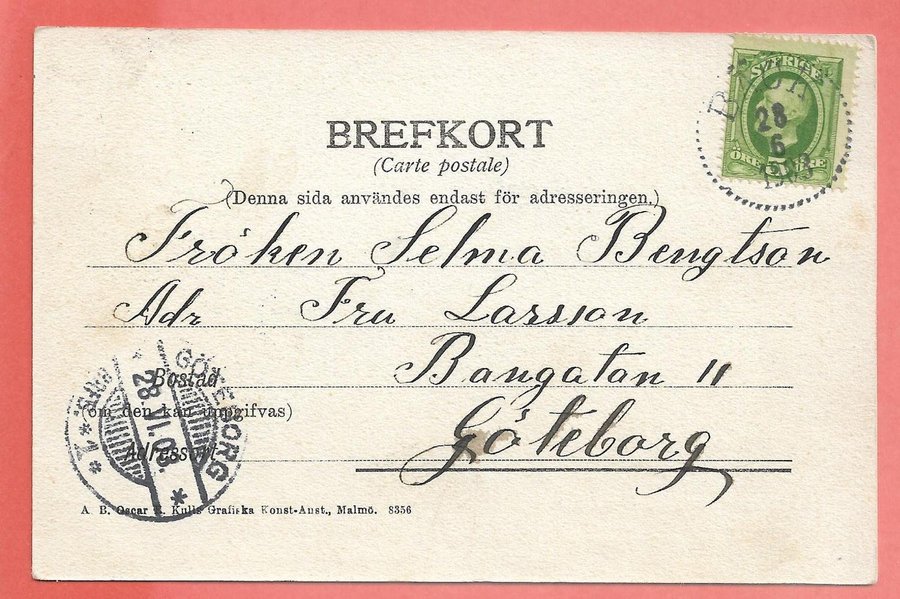 SVERIGE
28
6
ÖRE 5 ÖRE
BREFKORT
(Carte postale)
(Denna sida användes endast för adresseringen.)
Fröken Selma Bengtson
Adr Fru Larsson
Bangatan 11
Göteborg
Bostad
(om den kan uppgifvas)
Adressort
GÖTEBORG
28.VI.03.
A. B. Oscar E. Kulls Grafiska Konst-Anst., Malmö. 8356